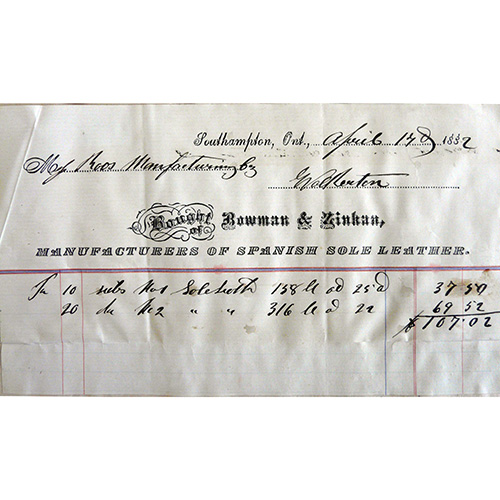 Southampton, Ont., April 17th 1882
Manufacturing Co
Walkerton
Bought of Bowman & Zinkan,
MANUFACTURERS OF SPANISH SOLE LEATHER.
10 No 1 Sole Leath 158 lb 25 37.50
20 do No 2 " " 316 lb 22 69 52
$107.02